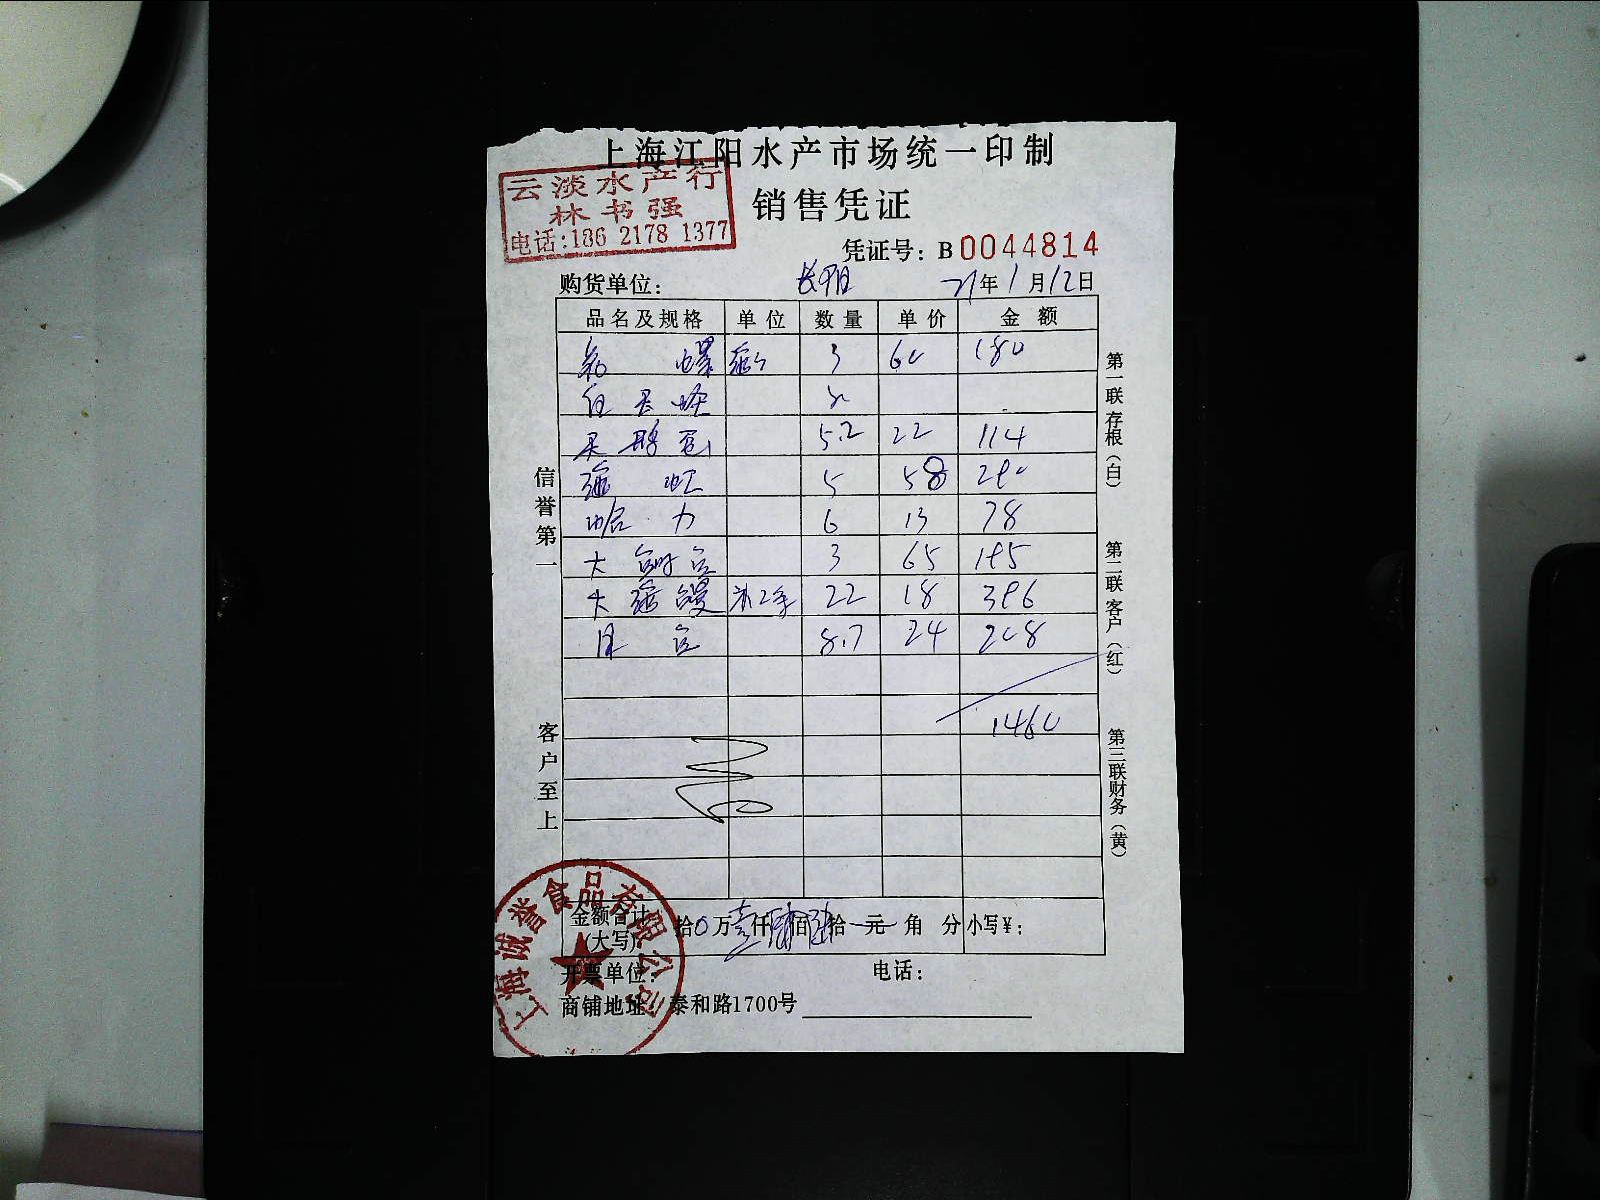 上海江阳水产市场统一印制
云淡水产行
林书强
电话:186 2178 1377
销售凭证
凭证号: B 0044814
购货单位: 长阳 21年1月12日
品名及规格 单位 数量 单价 金额
螺 3 60 180
5.2 22 114
5 58 290
哈力 6 13 78
大 3 65 195
大 22 18 396
8.7 24 208
1460
信誉第一
客户至上
第一联存根(白)
第二联客户(红)
第三联财务(黄)
金额合计(大写) 拾0万壹仟肆佰陆拾元角分 小写¥:
开票单位: 电话:
商铺地址: 泰和路1700号
上海诚誉食品有限公司